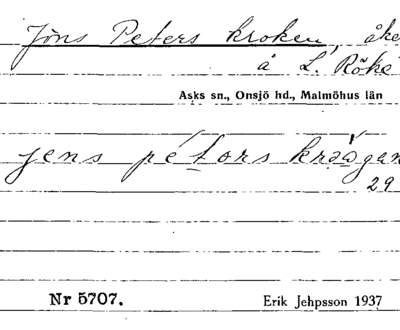 Jöns Peters kroken, åke
å L. Röke
Asks sn., Onsjö hd., Malmöhus län
jens pétors krəa̲gan
29
Nr 5707.
Erik Jehpsson 1937